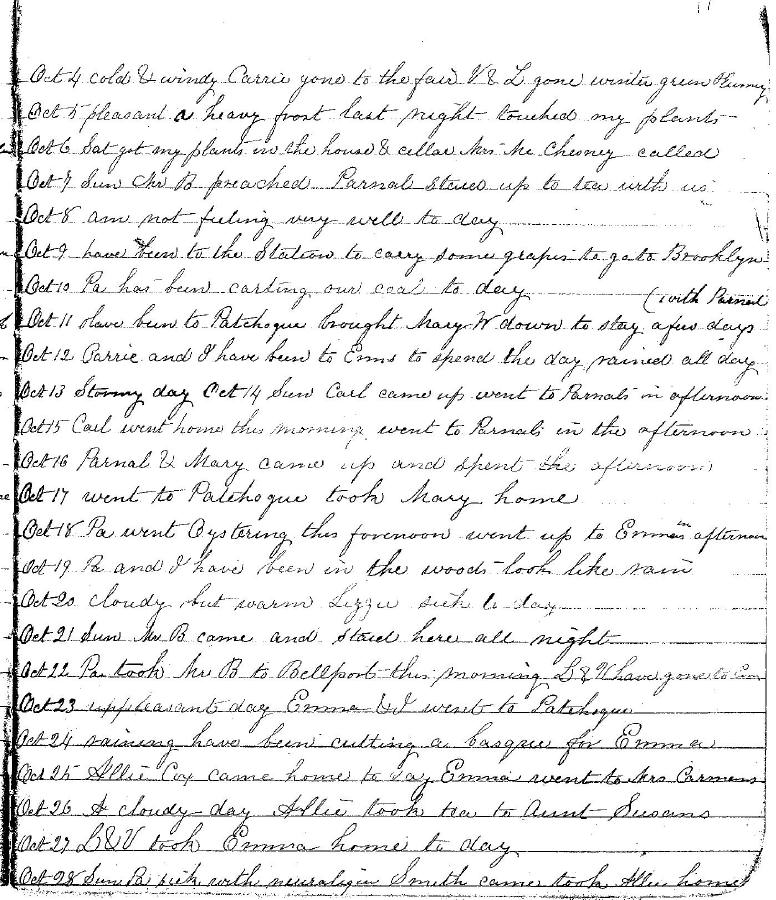 Oct 4 cold & windy Carrie gone to the fair V & L gone winter green
Oct 5 pleasant a heavy frost last night touched my plants
Oct 6 Sat got my plants in the house & cellar Mrs Mc Chesney called
Oct 7 Sun Mr B preached Parnal staid up to tea with us
Oct 8 am not feeling very well to day
Oct 9 have been to the Station to carry some grapes to go to Brooklyn
Oct 10 Pa has been carting our coal to day
(with Parnal
Oct 11 Have been to Patchogue brought Mary W down to stay a few days
Oct 12 Carrie and I have been to Ems to spend the day rained all day
Oct 13 Stormy day Oct 14 Sun Carl came up went to Parnals in afternoon
Oct 15 Carl went home this morning went to Parnals in the afternoon
Oct 16 Parnal & Mary came up and spent the afternoon
Oct 17 went to Patchogue took Mary home
Oct 18 Pa went Oystering this forenoon went up to Emmas in afternoon
Oct 19 Pa and I have been in the woods look like rain
Oct 20 cloudy but warm Lizzie sick to day
Oct 21 Sun Mr B came and staid here all night
Oct 22 Pa took Mr B to Bellport this morning L & V have gone to Em
Oct 23 unpleasant day Emma & I went to Patchogue
Oct 24 raining have been cutting a basque for Emma
Oct 25 Allie Cox came home to day Emma went to Mrs Carmans
Oct 26 A cloudy day Allie took tea to Aunt Susans
Oct 27 L & V took Emma home to day
Oct 28 Sun Pa sick with neuralgia Smith came took Allie home